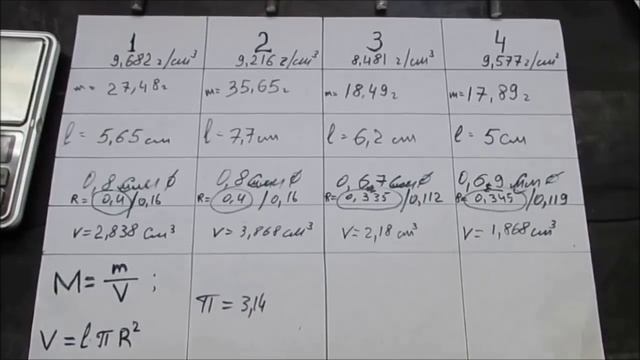 1 2 3 4
9,682 г/см³ 9,216 г/см³ 8,481 г/см³ 9,577 г/см³
m= 27,48г m= 35,65г m= 18.49г m= 17,89г
l= 5,65 см l= 7,7 см l= 6,2 см l= 5 см
0,8 0,8 0,6.7 0,6.9
R= 0,4 / 0,16 R= 0,4 / 0,16 R= 0,335 / 0,112 R= 0,345 / 0,119
V= 2,838 см³ V= 3,868 см³ V= 2,18 см³ V= 1,868 см³
M= m/V ;
П = 3,14
V= l·πR²